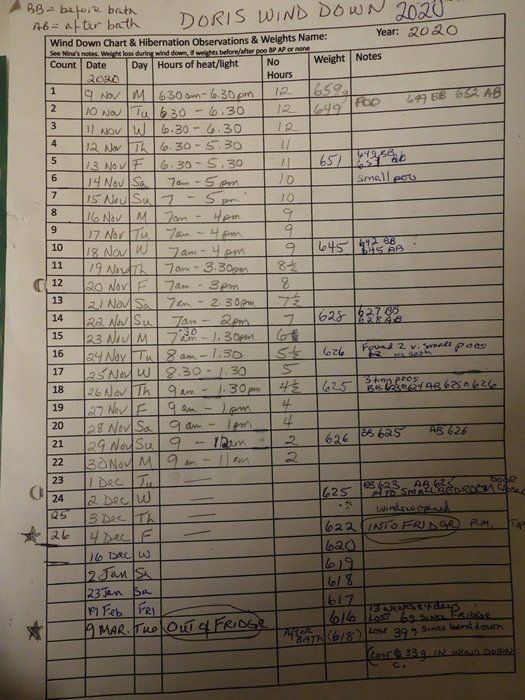 BB = before bath
AB = after bath
DORIS WIND DOWN 2020
Wind Down Chart & Hibernation Observations & Weights Name: Year: 2020
See Nina's notes. Weight loss during wind down, if weights before/after poo BP AP or none
Count Date Day Hours of heat/light No Hours Weight Notes
2020
1 9 Nov M 6.30am - 6.30pm 12 659g
2 10 Nov Tu 6.30 - 6.30 12 649 POO 649 BB 652 AB
3 11 Nov W 6.30 - 6.30 12
4 12 Nov Th 6.30 - 5.30 11
5 13 Nov F 6.30 - 5.30 11 651 649 BB 651 ab
6 14 Nov Sa 7am - 5pm 10 small poo
7 15 Nov Su 7 - 5pm 10
8 16 Nov M 7am - 4pm 9
9 17 Nov Tu 7am - 4pm 9
10 18 Nov W 7am - 4pm 9 645 642 BB 645 AB
11 19 Nov Th 7am - 3.30pm 8½
12 20 Nov F 7am - 3pm 8
13 21 Nov Sa 7am - 2.30pm 7½
14 22 Nov Su 7am - 2pm 7 628 627 BB 628 AB
15 23 Nov M 7.30am - 1.30pm 6
16 24 Nov Tu 8am - 1.30 5½ 626 Found 2 v. small poos no bath
17 25 Nov W 8.30 - 1.30 5
18 26 Nov Th 9am - 1.30pm 4½ 625 poos BB AB 625
19 27 Nov F 9am - 1pm 4
20 28 Nov Sa 9am - 1pm 4
21 29 Nov Su 9 - 2 626 BB 625 AB 626
22 30 Nov M 9am - 11am 2
23 1 Dec Tu — BB 623 AB 625 DOOR
24 2 Dec W — 625 INTO SMALL BEDROOM
25 3 Dec Th — window opened
26 4 Dec F — 622 INTO FRIDGE P.M.
16 Dec W 620
2 Jan Sa 619
618
23 Jan Sa 617
19 Feb FRI 616 13 weeks 4 days
LOST 6g SINCE FRIDGE
9 MAR. Tue OUT of FRIDGE AFTER BATH (618) Lost 39g since wind down
LOST 33g IN WIND DOWN